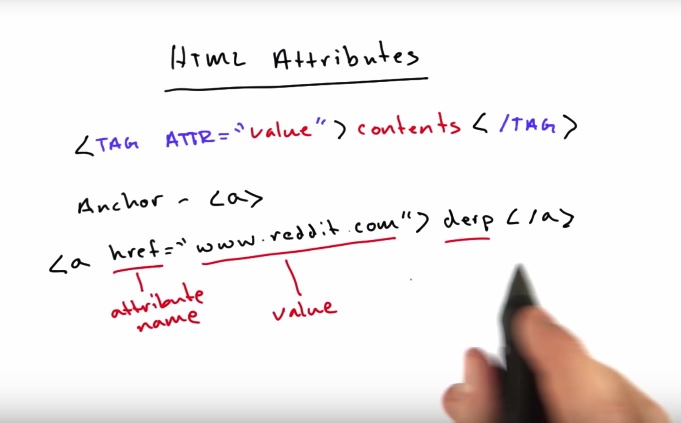 HTML Attributes
<TAG ATTR="value"> contents </TAG>
Anchor - <a>
<a href="www.reddit.com"> derp </a>
attribute name
value